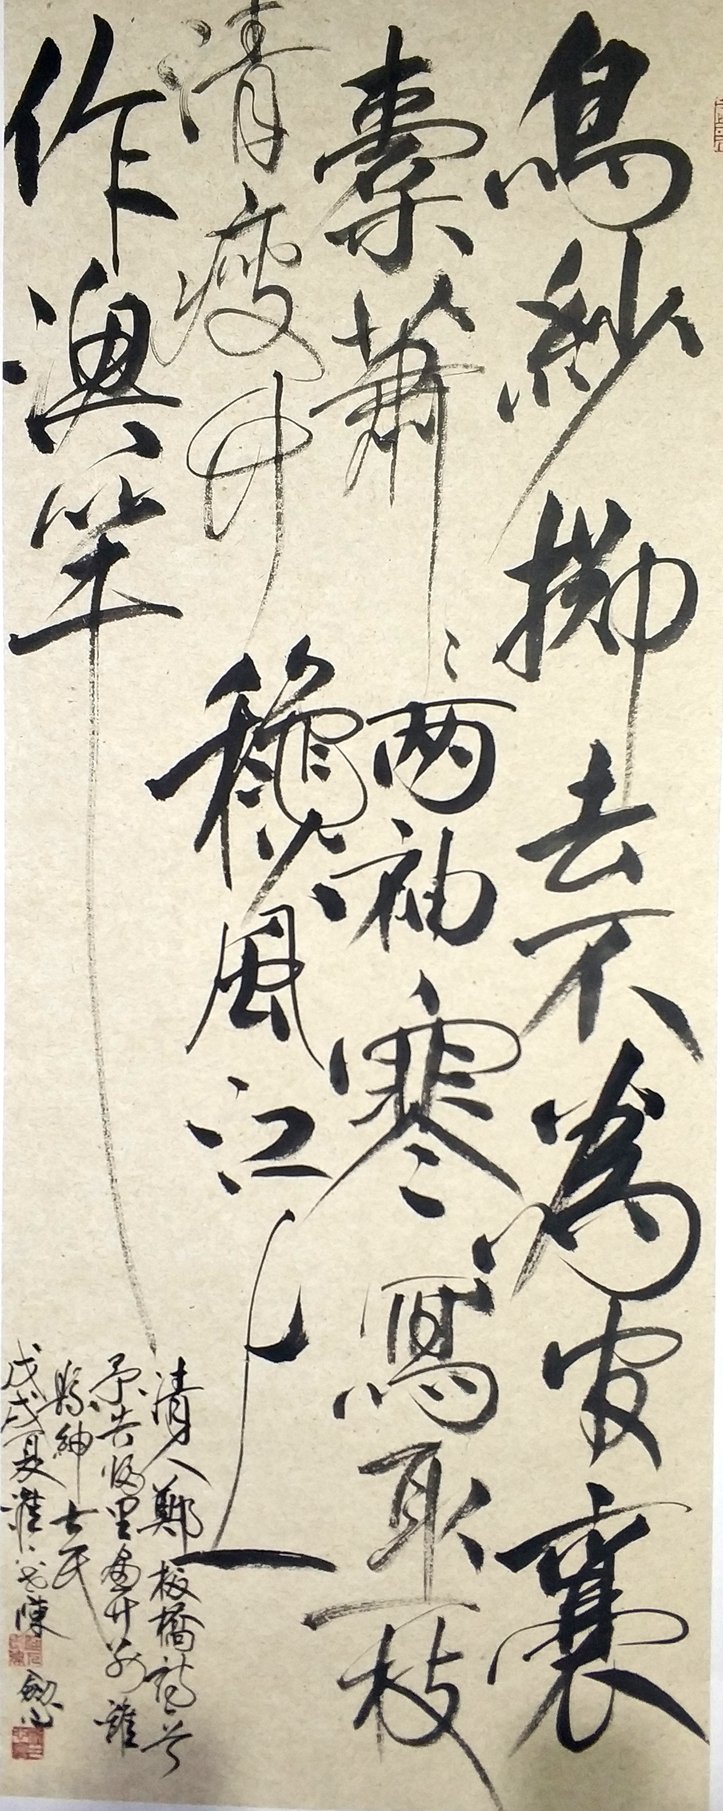 烏紗擲去不為官囊
橐蕭〻两袖寒寫取一枝
清瘦竹龝風江上
作漁竿
清人鄭板橋詩
予告歸里畫竹別濰
縣紳士民
戊戌夏陳